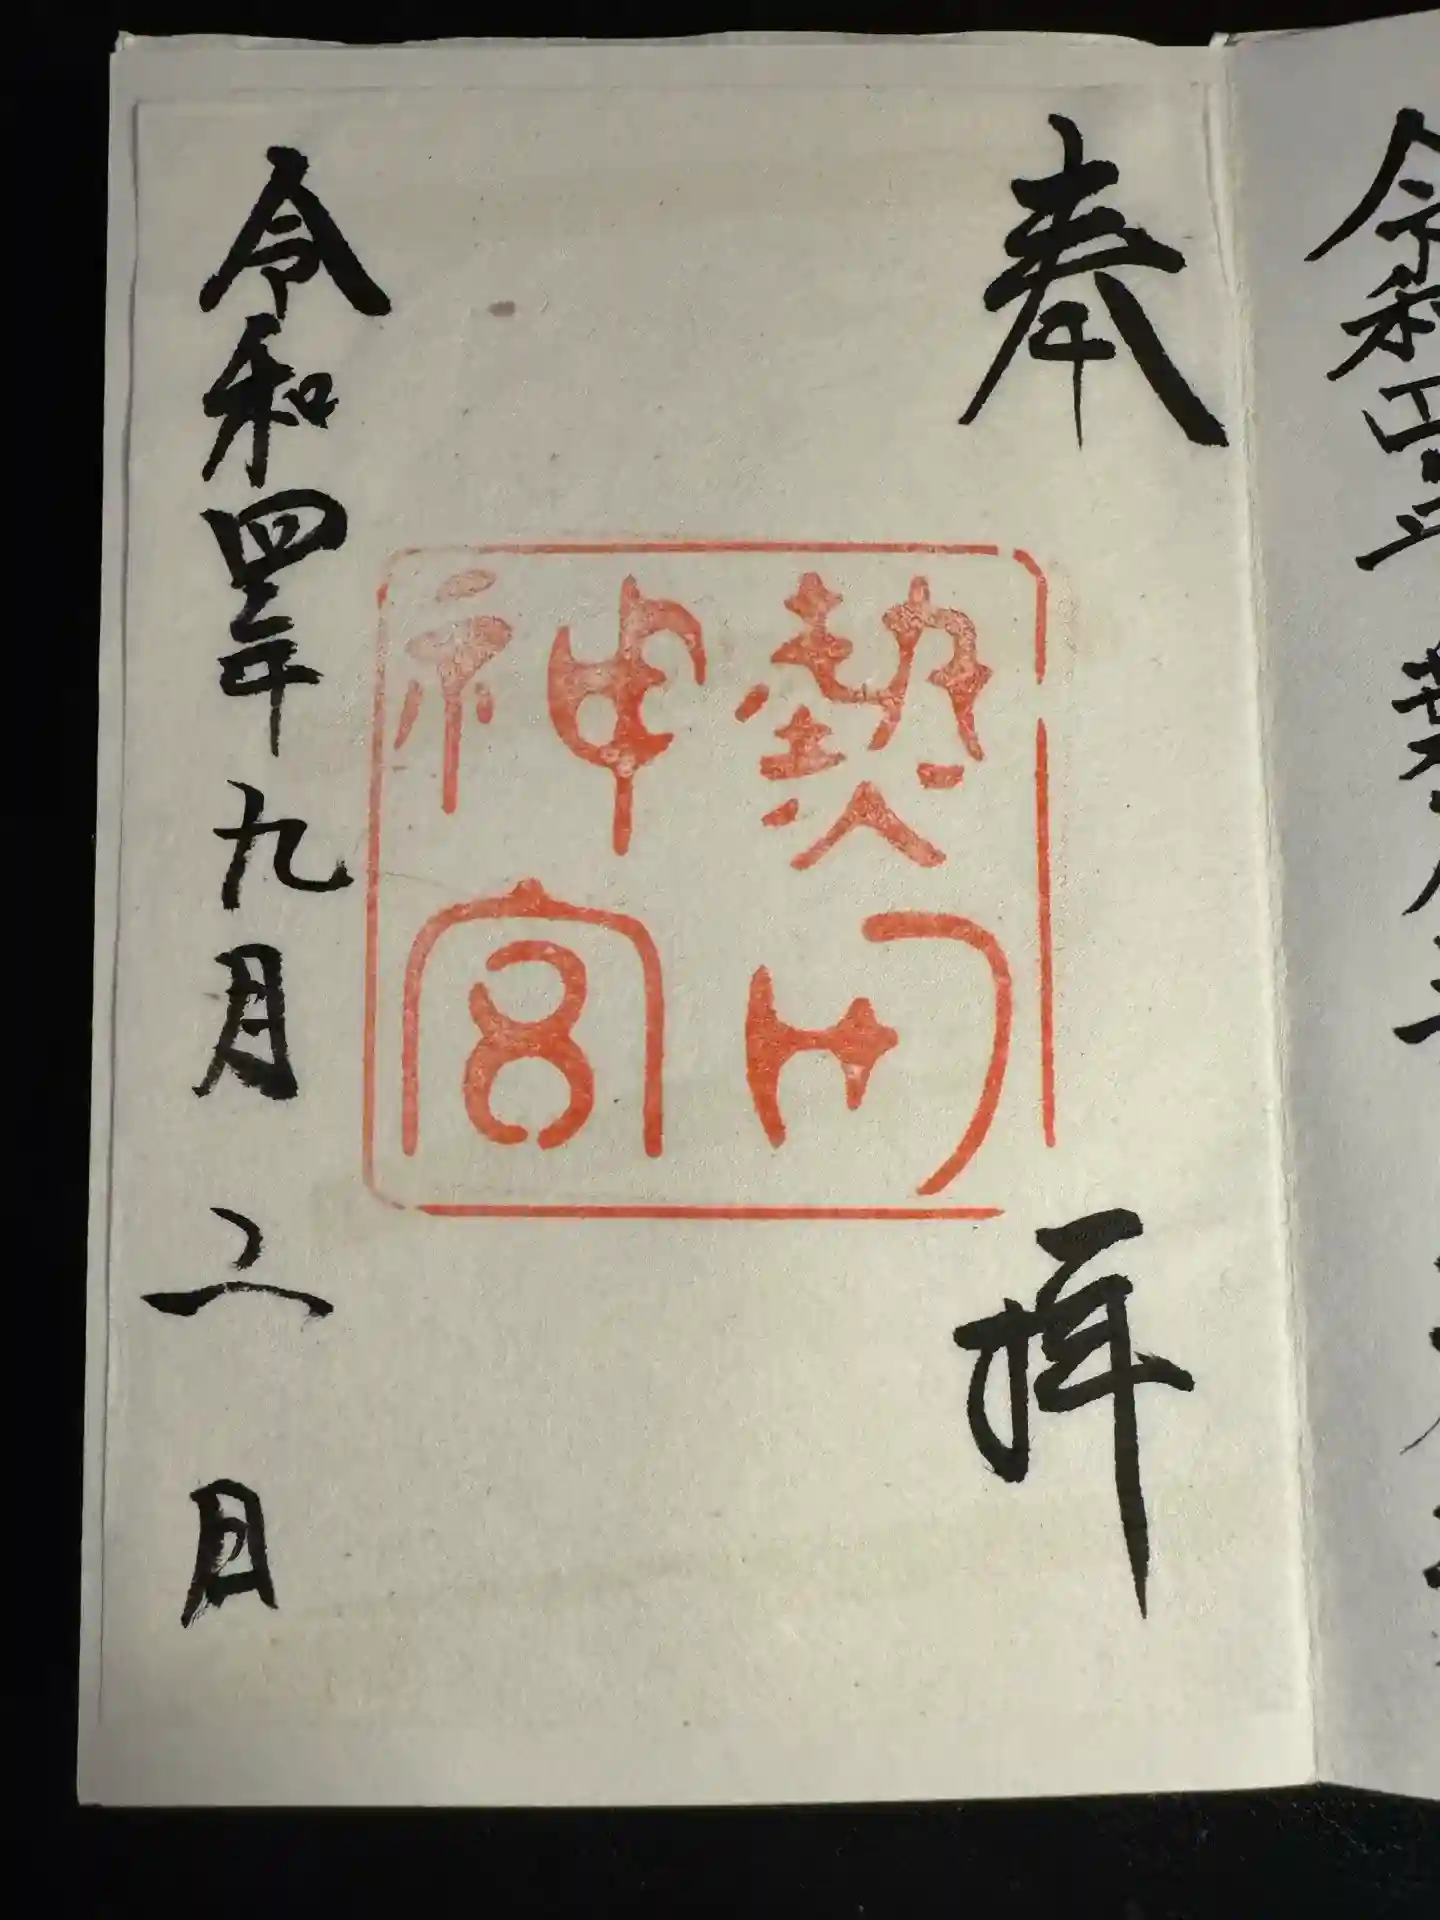 令和
奉拝
熱田
神宮
令和四年九月二日